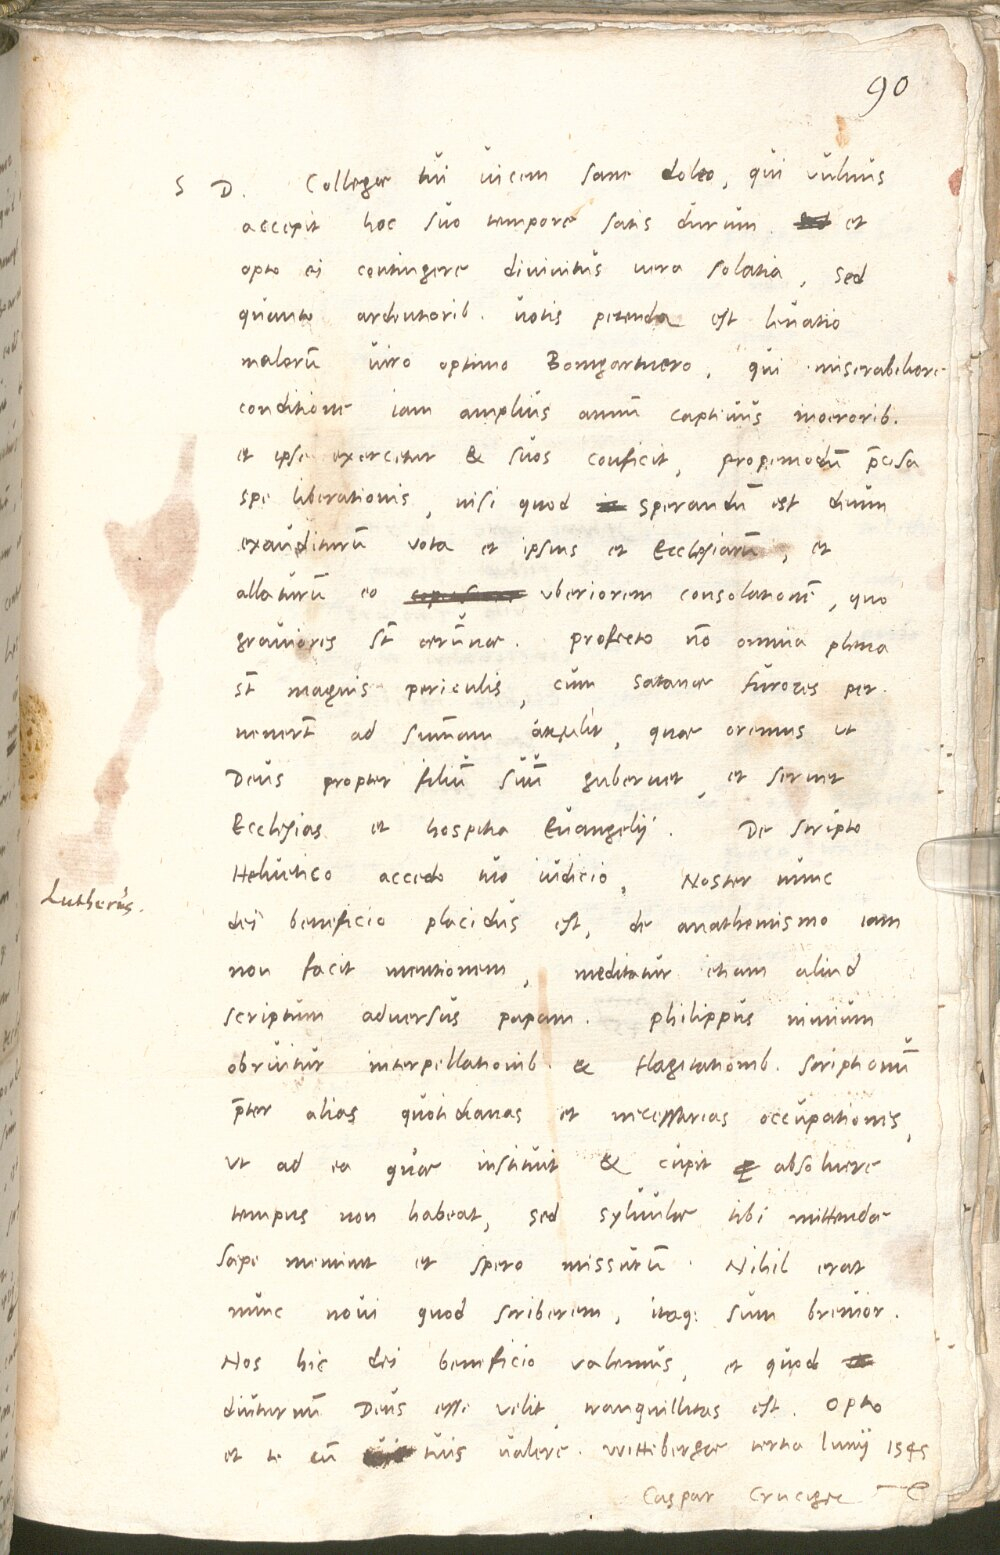 90
S D. Collegae tui vicem sane doleo, qui vulnus
accepit hoc suo tempore satis durum. et
opto ei contingere divinitus vera solatia, sed
quanto ardentiorib. votis petenda est levatio
malorũ viro optimo Bomgartnero, qui miserabiliore
conditione iam amplius annũ captivus moerorib.
et ipse exercetur & suos conficit, propemodũ p̃cisa
spe liberationis, nisi quod sperandũ est deum
exauditurũ vota et ipsius et Ecclesiarũ, et
allaturũ eo uberiorem consolationẽ, quo
graviores st̃ aerũnae. Profecto nõ omnia plena
st̃ magnis periculis, cum Satanae furores per
venerũt ad sum̃am, quae oremus ut
Deus propter filiũ suũ gubernet, et servet
Ecclesias et hospitia Evangelij. De scripto
Helvetico accedo tuo iudicio, Noster nunc
Lutherus.
dei beneficio placidus est, de anathemismo iam
non facit mentionem, meditatur etiam aliud
scriptum adversus papam. Philippus nimium
obruitur interpellationib. & flagitationib. scriptionũ
p̃ter alias quotidianas et necessarias occupationes,
ut ad ea quae instituit & cupit absolvere
tempus non habeat, sed sylvulae tibi mittendae
saepe meminit et spero missurũ. Nihil erat
nunc novi quod scriberem, itaq; sum brevior.
Nos hic dei beneficio valemus, et quod
diuturnũ Deus esse velit, tranquillitas est. Opto
et te cũ tuis valere. Wittebergae tertia Iunij 1545
Caspar Cruciger